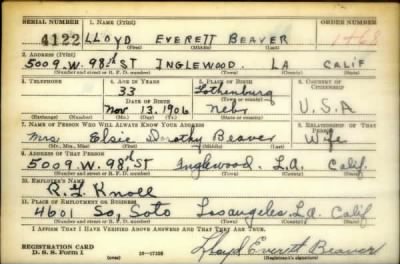 SERIAL NUMBER 1. NAME (Print) ORDER NUMBER
4122 LLOYD EVERETT BEAVER
(First) (Middle) (Last)
2. ADDRESS (Print)
5009.W.98th ST INGLEWOOD. LA CALIF
(Number and street or R. F. D. number) (Town) (County) (State)
3. TELEPHONE 4. AGE IN YEARS 5. PLACE OF BIRTH 6. COUNTRY OF CITIZENSHIP
33 Gothenburg
DATE OF BIRTH (Town or county)
Nov 13. 1906 Nebr U.S.A
(Exchange) (Number) (Mo.) (Day) (Yr.) (State or country)
7. NAME OF PERSON WHO WILL ALWAYS KNOW YOUR ADDRESS 8. RELATIONSHIP OF THAT PERSON
Mrs Elsie Dorothy Beaver Wife
(Mr., Mrs., Miss) (First) (Middle) (Last)
9. ADDRESS OF THAT PERSON
5009.W.98th ST Inglewood. L.A. Calif.
(Number and street or R. F. D. number) (Town) (County) (State)
10. EMPLOYER'S NAME
11. PLACE OF EMPLOYMENT OR BUSINESS
4601 So, Soto Los angeles. L.a. Calif
(Number and street or R. F. D. number) (Town) (County) (State)
I AFFIRM THAT I HAVE VERIFIED ABOVE ANSWERS AND THAT THEY ARE TRUE.
REGISTRATION CARD
D. S. S. Form 1 16-17105 Lloyd Everett Beaver
(Registrant's signature)